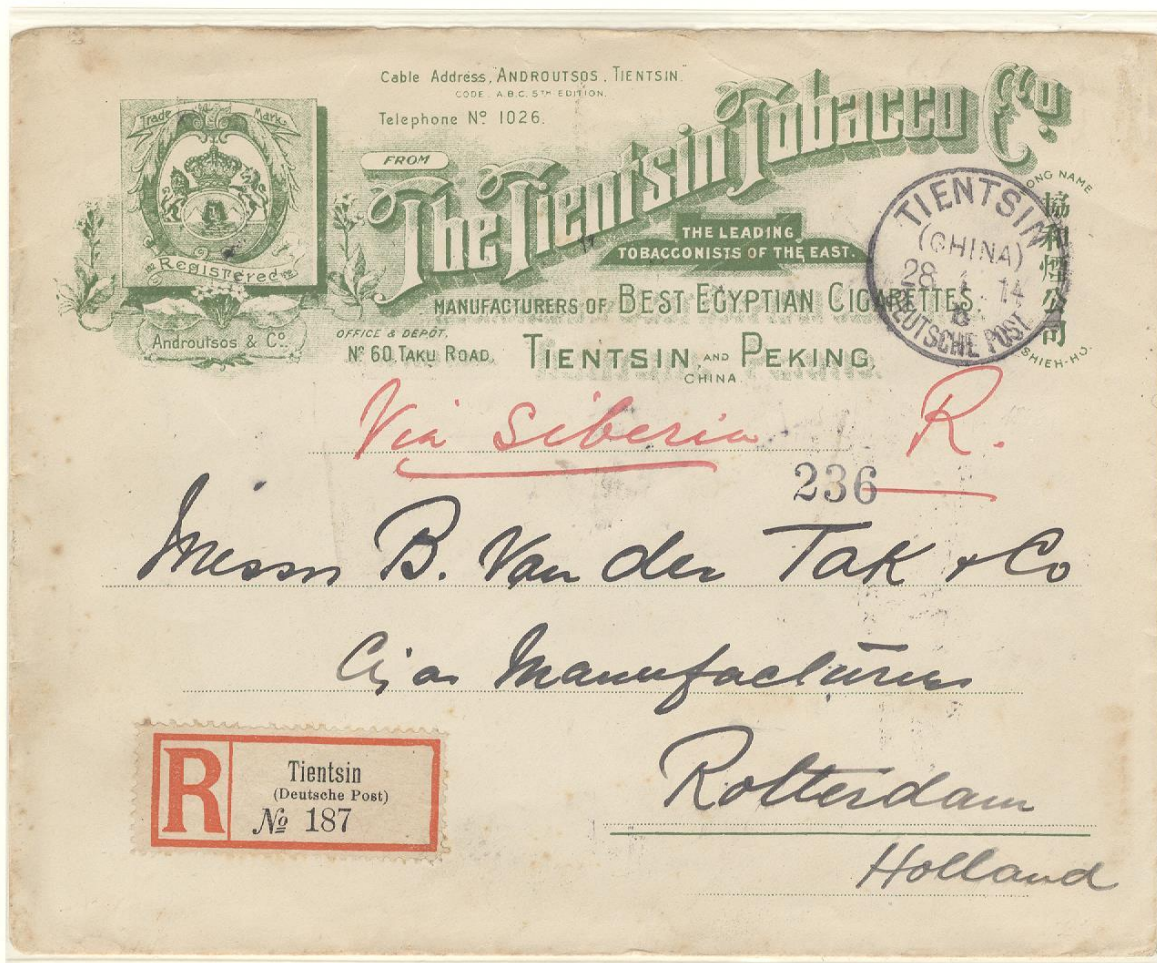 Cable Address, ANDROUTSOS, TIENTSIN.
CODE. A.B.C. 5TH EDITION.
Telephone No 1026.
Trade Mark
Registered
Androutsos & Co.
FROM
The Tientsin Tobacco Co.
THE LEADING
TOBACCONISTS OF THE EAST.
MANUFACTURERS OF BEST EGYPTIAN CIGARETTES
OFFICE & DEPÔT,
No 60, TAKU ROAD,
TIENTSIN AND PEKING,
CHINA
HONG NAME
協和煙公司
SHIEH-HO.
TIENTSIN
(CHINA)
28 1 14
DEUTSCHE POST
Via Siberia R.
236
Messrs B. Van der Tak & Co
Cigar Manufacturers
Rotterdam
Holland
R
Tientsin
(Deutsche Post)
No 187